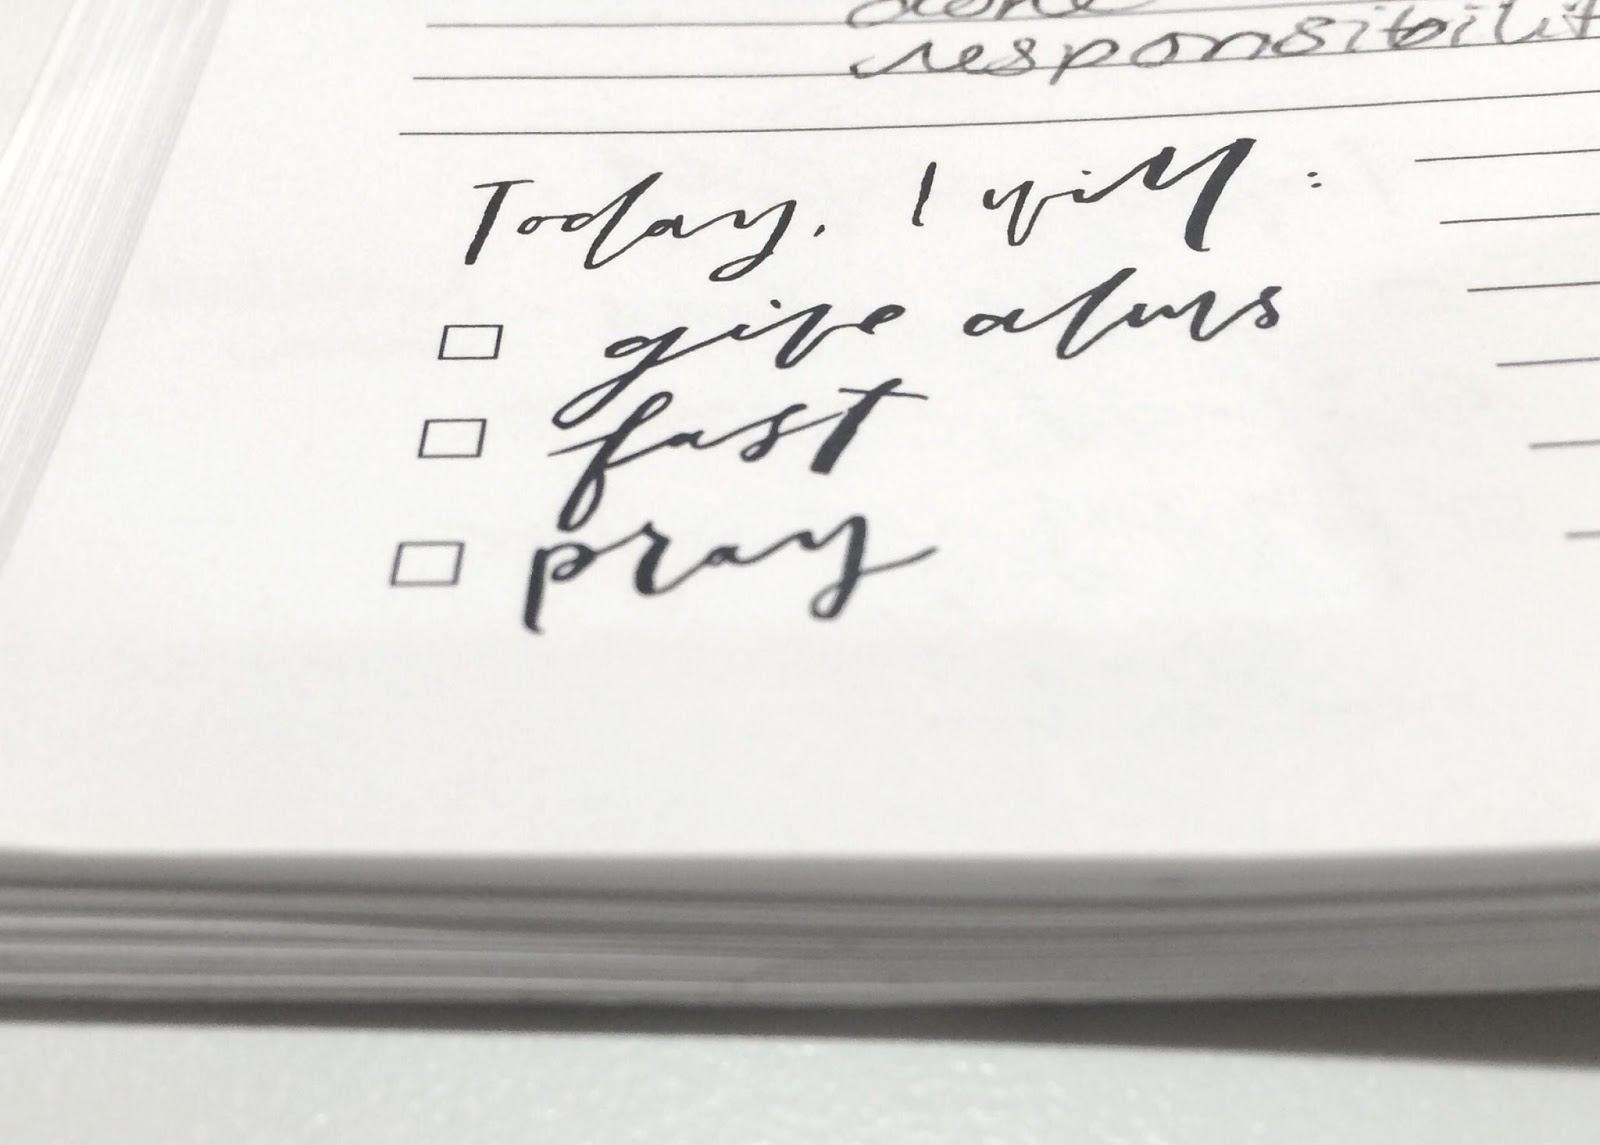 responsibilit
Today, I will :
give alms
fast
pray